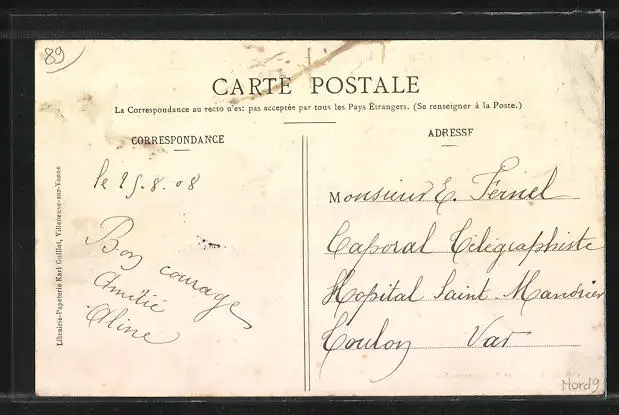 89
CARTE POSTALE
La Correspondance au recto n'est pas acceptée par tous les Pays Étrangers. (Se renseigner à la Poste.)
CORRESPONDANCE
ADRESSE
le 25.8.08
Bon courage
Amitié
Aline
Monsieur E. Fernel
Caporal Télégraphiste
Hopital Saint-Mandrier
Toulon Var
Librairie-Papeterie Karl Guillot, Villeneuve-sur-Yonne
Mord9